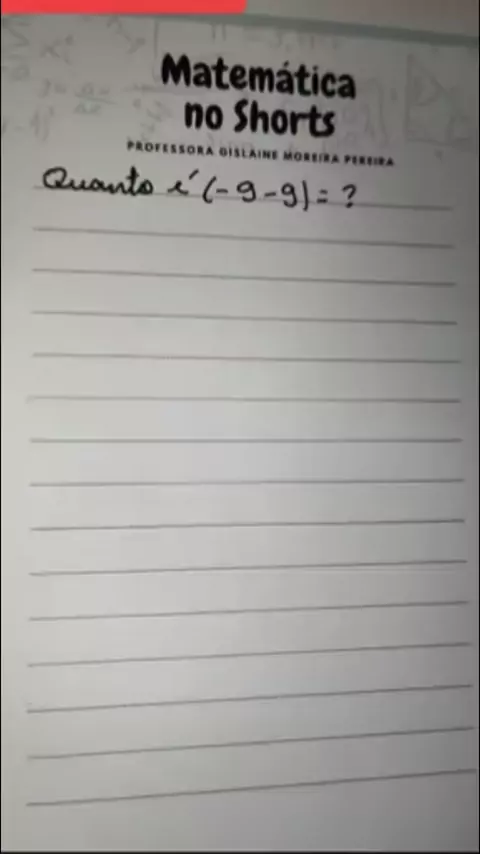 Matemática
no Shorts
PROFESSORA GISLAINE MOREIRA PEREIRA
Quanto é (-9-9)=?